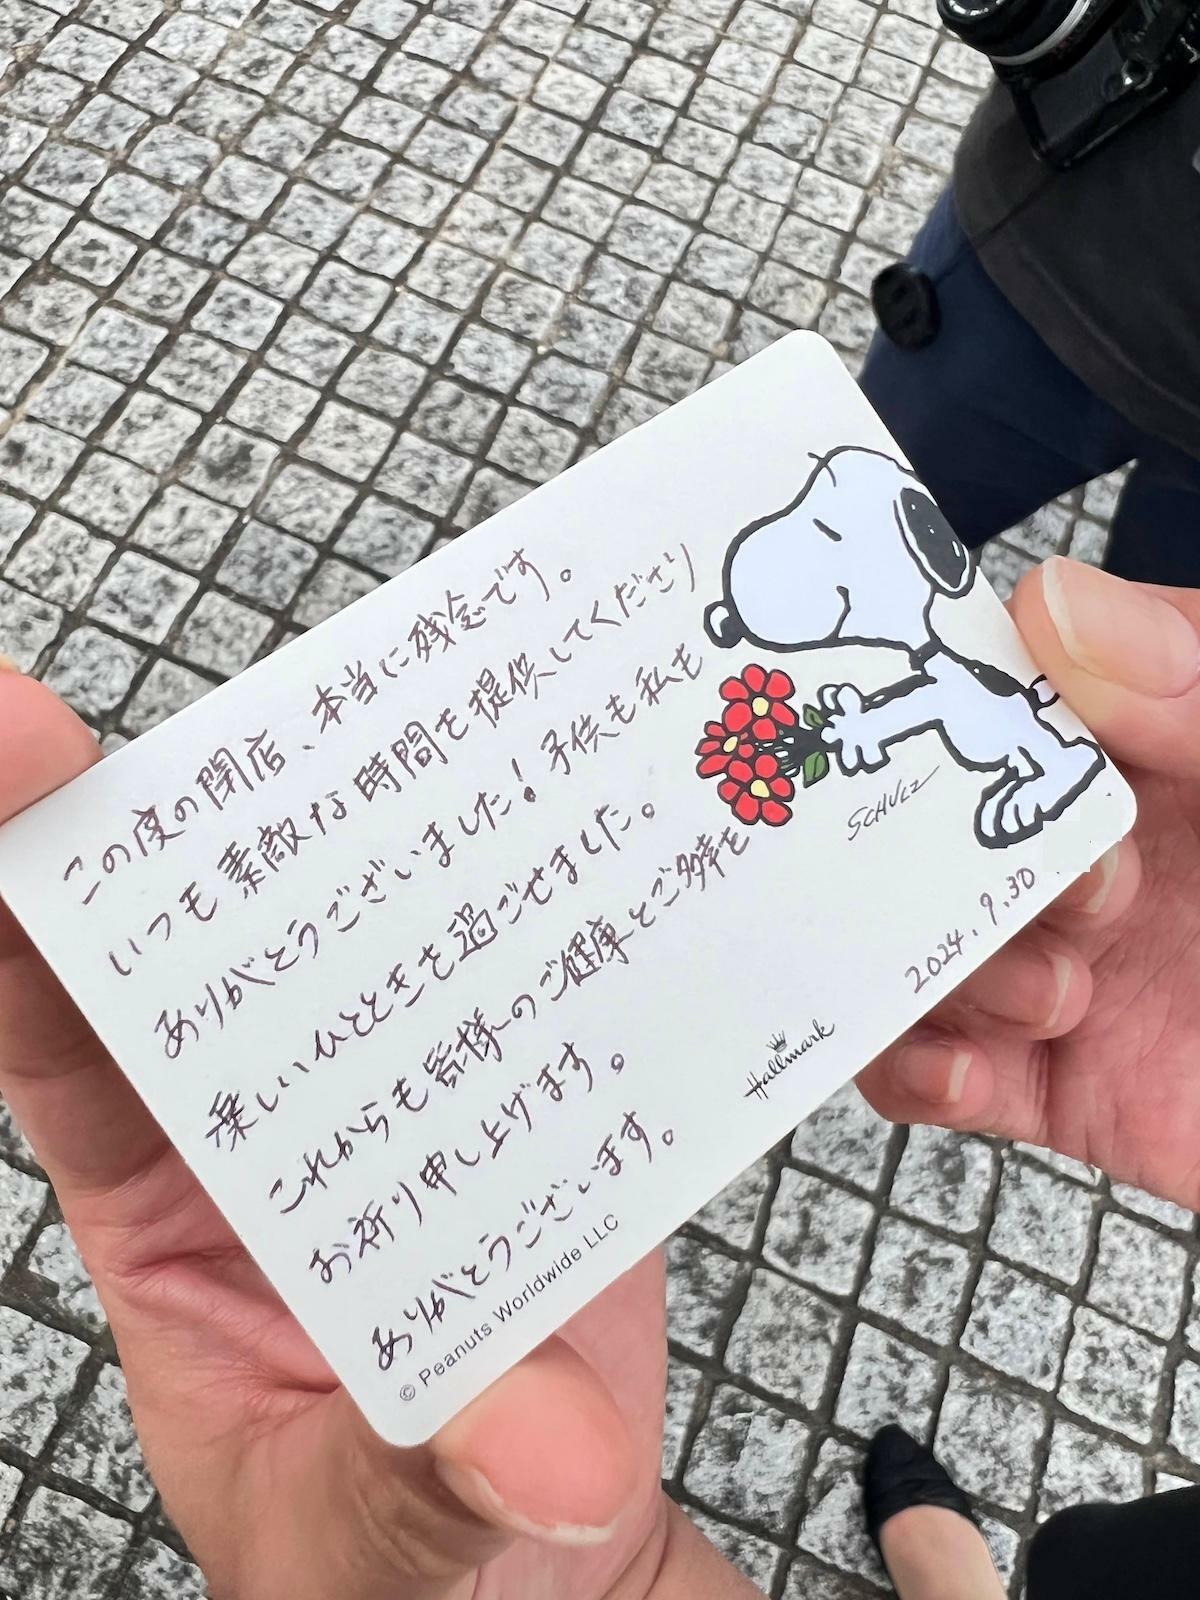 この度の閉店、本当に残念です。
いつも素敵な時間を提供してくださり
ありがとうございました！子供も私も
楽しいひとときを過ごせました。
これからも皆様のご健康とご多幸を
お祈り申し上げます。
ありがとうございます。
© Peanuts Worldwide LLC
SCHULZ
2024.9.30
Hallmark